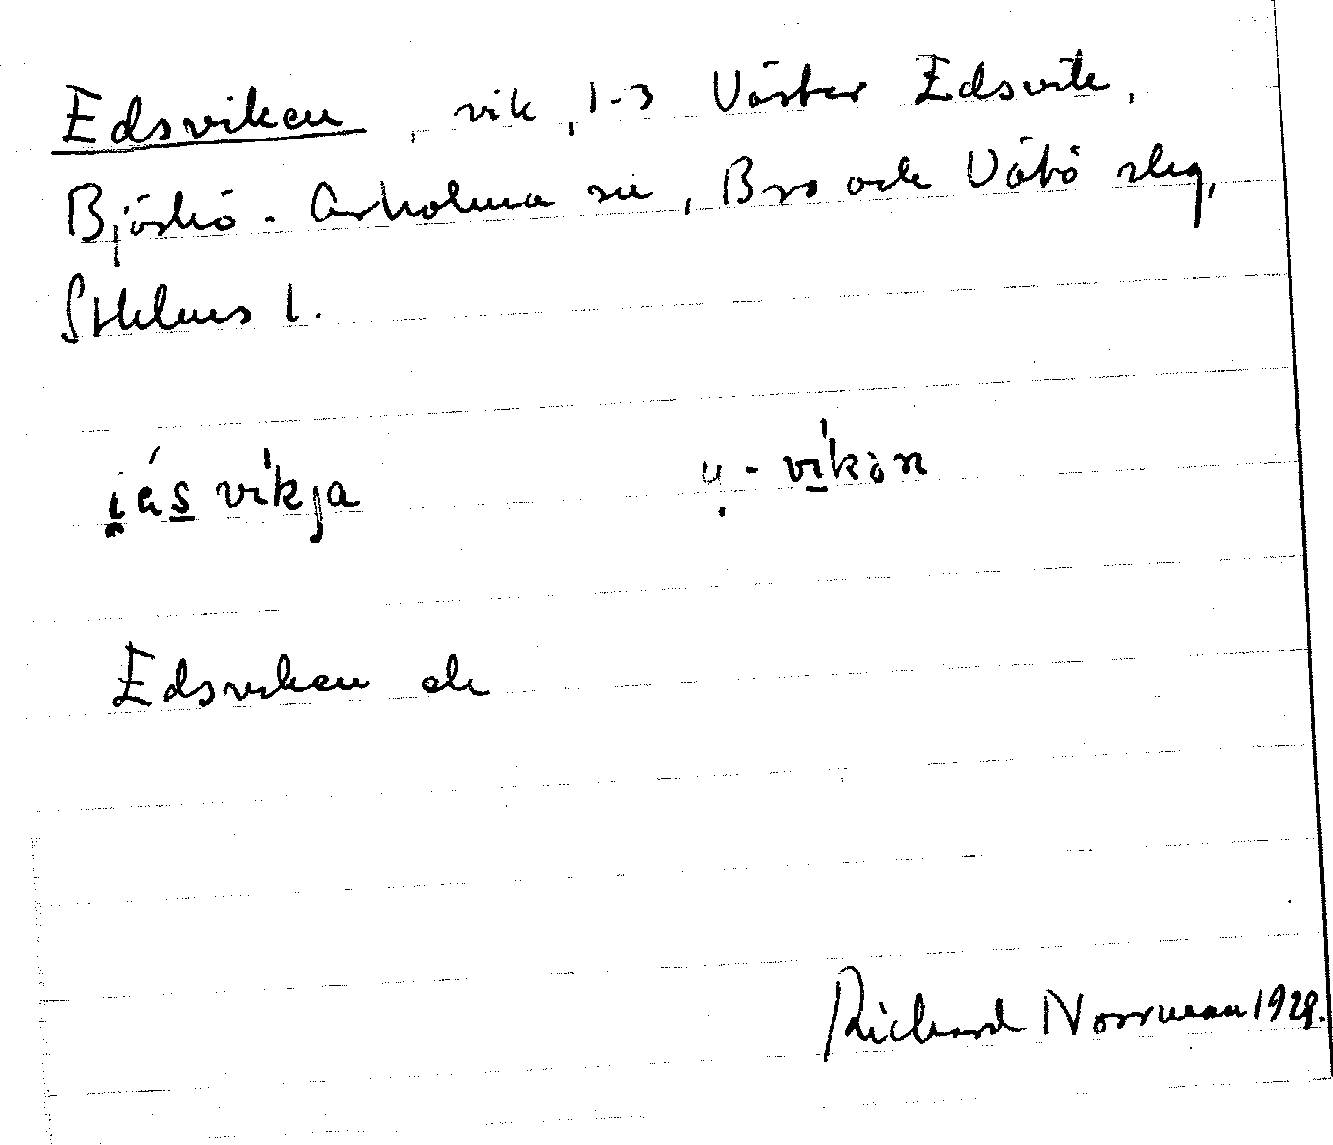 Edsviken, vik, 1-3 Väster Edsvik,
Björkö-Arholma sn, Bro och Vätö slg,
Sthlms l.
i̯ásvikja u-vikọn
Edsviken ek
Richard Norrman 1929.